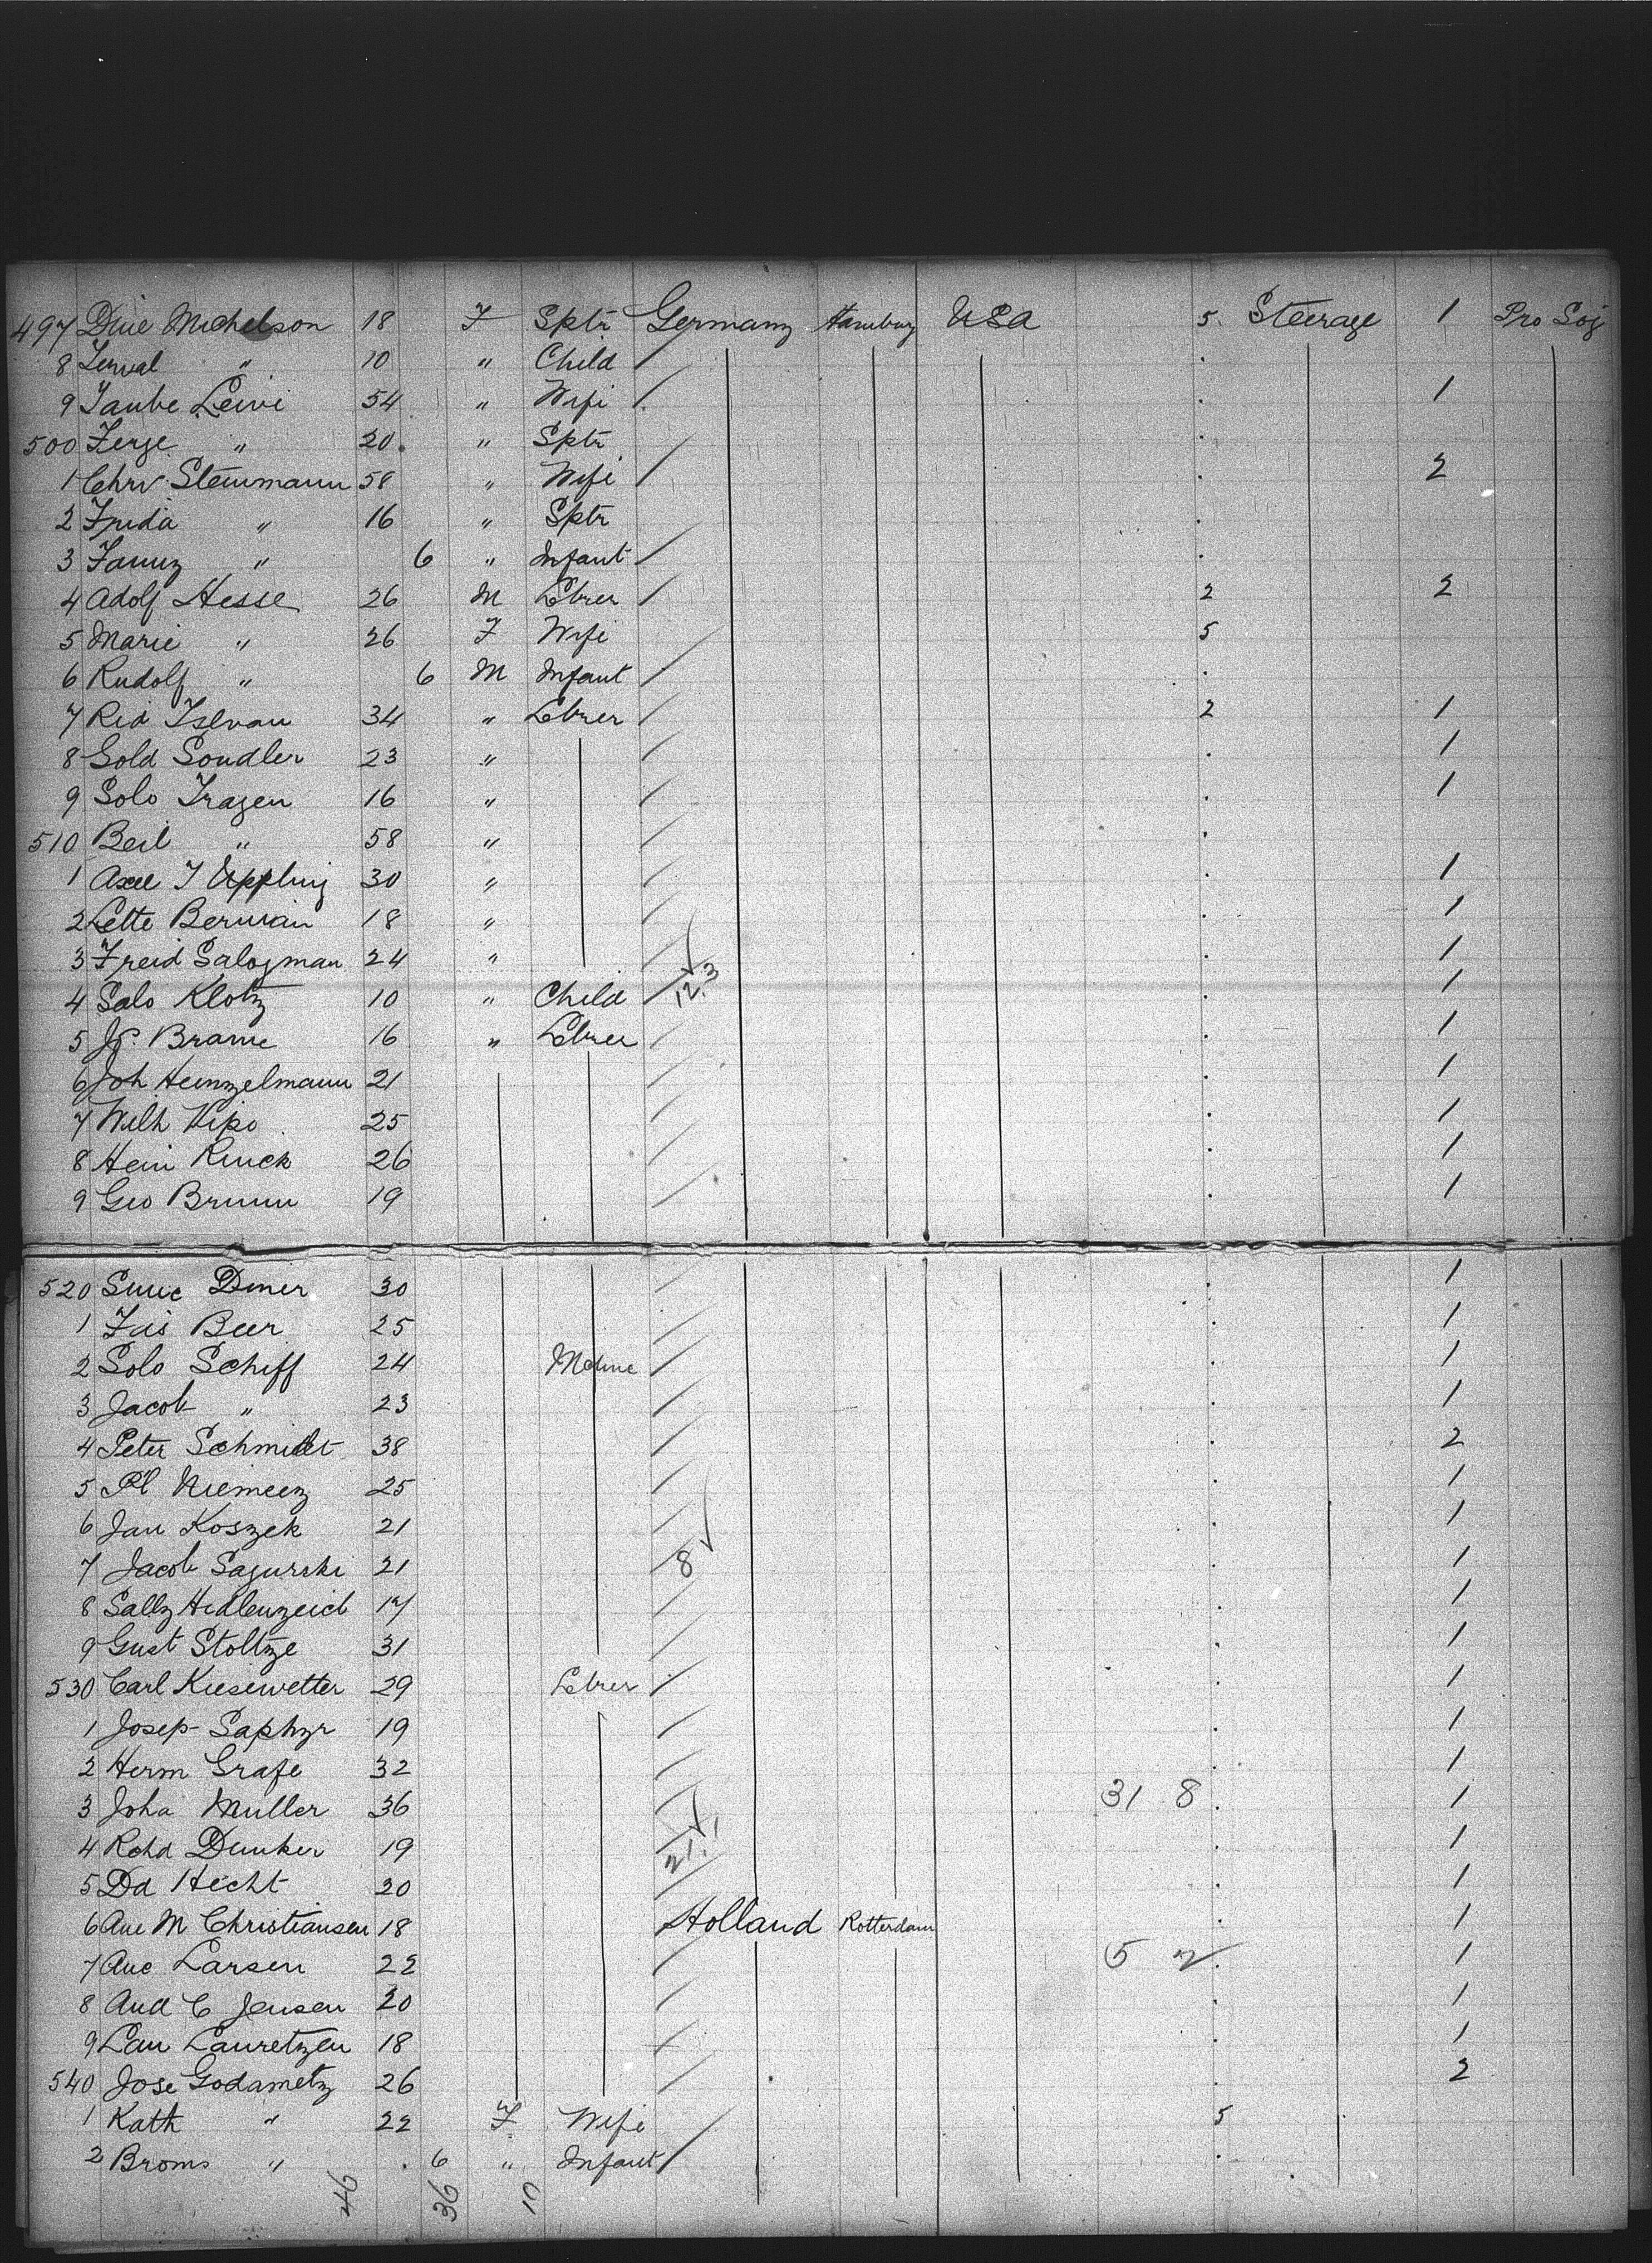 497 Dine Michelson 18 F Sptr Germany Hamburg USA 5 Steerage 1 Pro Soj
8 " 10 " Child
9 Taube Leivi 54 " Wife 1
500 " 20 " Sptr
1 Chrv Steinmann 58 " Wife 2
2 Frida " 16 " Sptr
3 Fanny " 6 " Infant
4 Adolf Hesse 26 M Lbrer 2 2
5 Marie " 26 F Wife 5
6 Rudolf " 6 M Infant
7 Rid Islvan 34 " Lbrer 2 1
8 Gold Sondler 23 " 1
9 Solo Tragen 16 " 1
510 Beil " 58 "
1 Axel J Uppling 30 " 1
2 Lette Berman 18 " 1
3 Freid Salogman 24 " 1
4 Salo Klotz 10 " Child 12.3 1
5 Js. Brame 16 " Lbrer 1
6 Joh Heinzelmann 21 1
7 Wilh Kipo 25 1
8 Hein Rinck 26 1
9 Geo Brunn 19 1
520 Diner 30 1
1 Beer 25 1
2 Solo Schiff 24 1
3 Jacob " 23 1
4 Peter Schmidt 38 2
5 Pl Niemeez 25 1
6 Jan Koszek 21 1
7 Jacob Sagurski 21 8 1
8 Sally 17 1
9 Gust Stoltze 31 1
530 Carl Kiesewetter 29 Lbrer 1
1 Josep Saphyr 19 1
2 Herm Grafe 32 1
3 Joha Muller 36 31 8 1
4 Rohd Dunker 19 21.1 1
5 Dd Hecht 20 1
6 Ane M Christiansen 18 Holland Rotterdam 1
7 Ane Larsen 22 5 2 1
8 And C Jensen 20 1
9 Lau Lauretzen 18 1
540 Jose Godametz 26 2
1 Kath " 22 F Wife 5
2 Broms " 6 " Infant
46 36 10